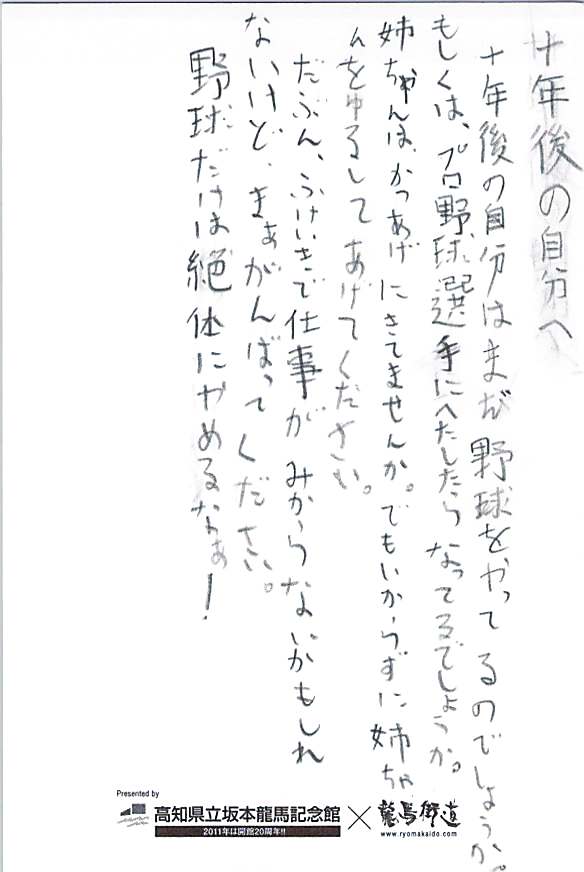 十年後の自分へ
十年後の自分はまだ野球をやってるのでしょうか。
もしくは、プロ野球選手にへたしたらなってるでしょうか。
姉ちゃんは、かつあげにきてませんか。でもいからずに姉ちゃ
んをゆるしてあげてください。
だぶん、ふけいきで仕事がみからないかもしれ
ないけど、まぁがんばってください。
野球だけは絶体にやめるなぁ!
Presented by
高知県立坂本龍馬記念館
2011年は開館20周年!!
×
龍馬街道
www.ryomakaido.com